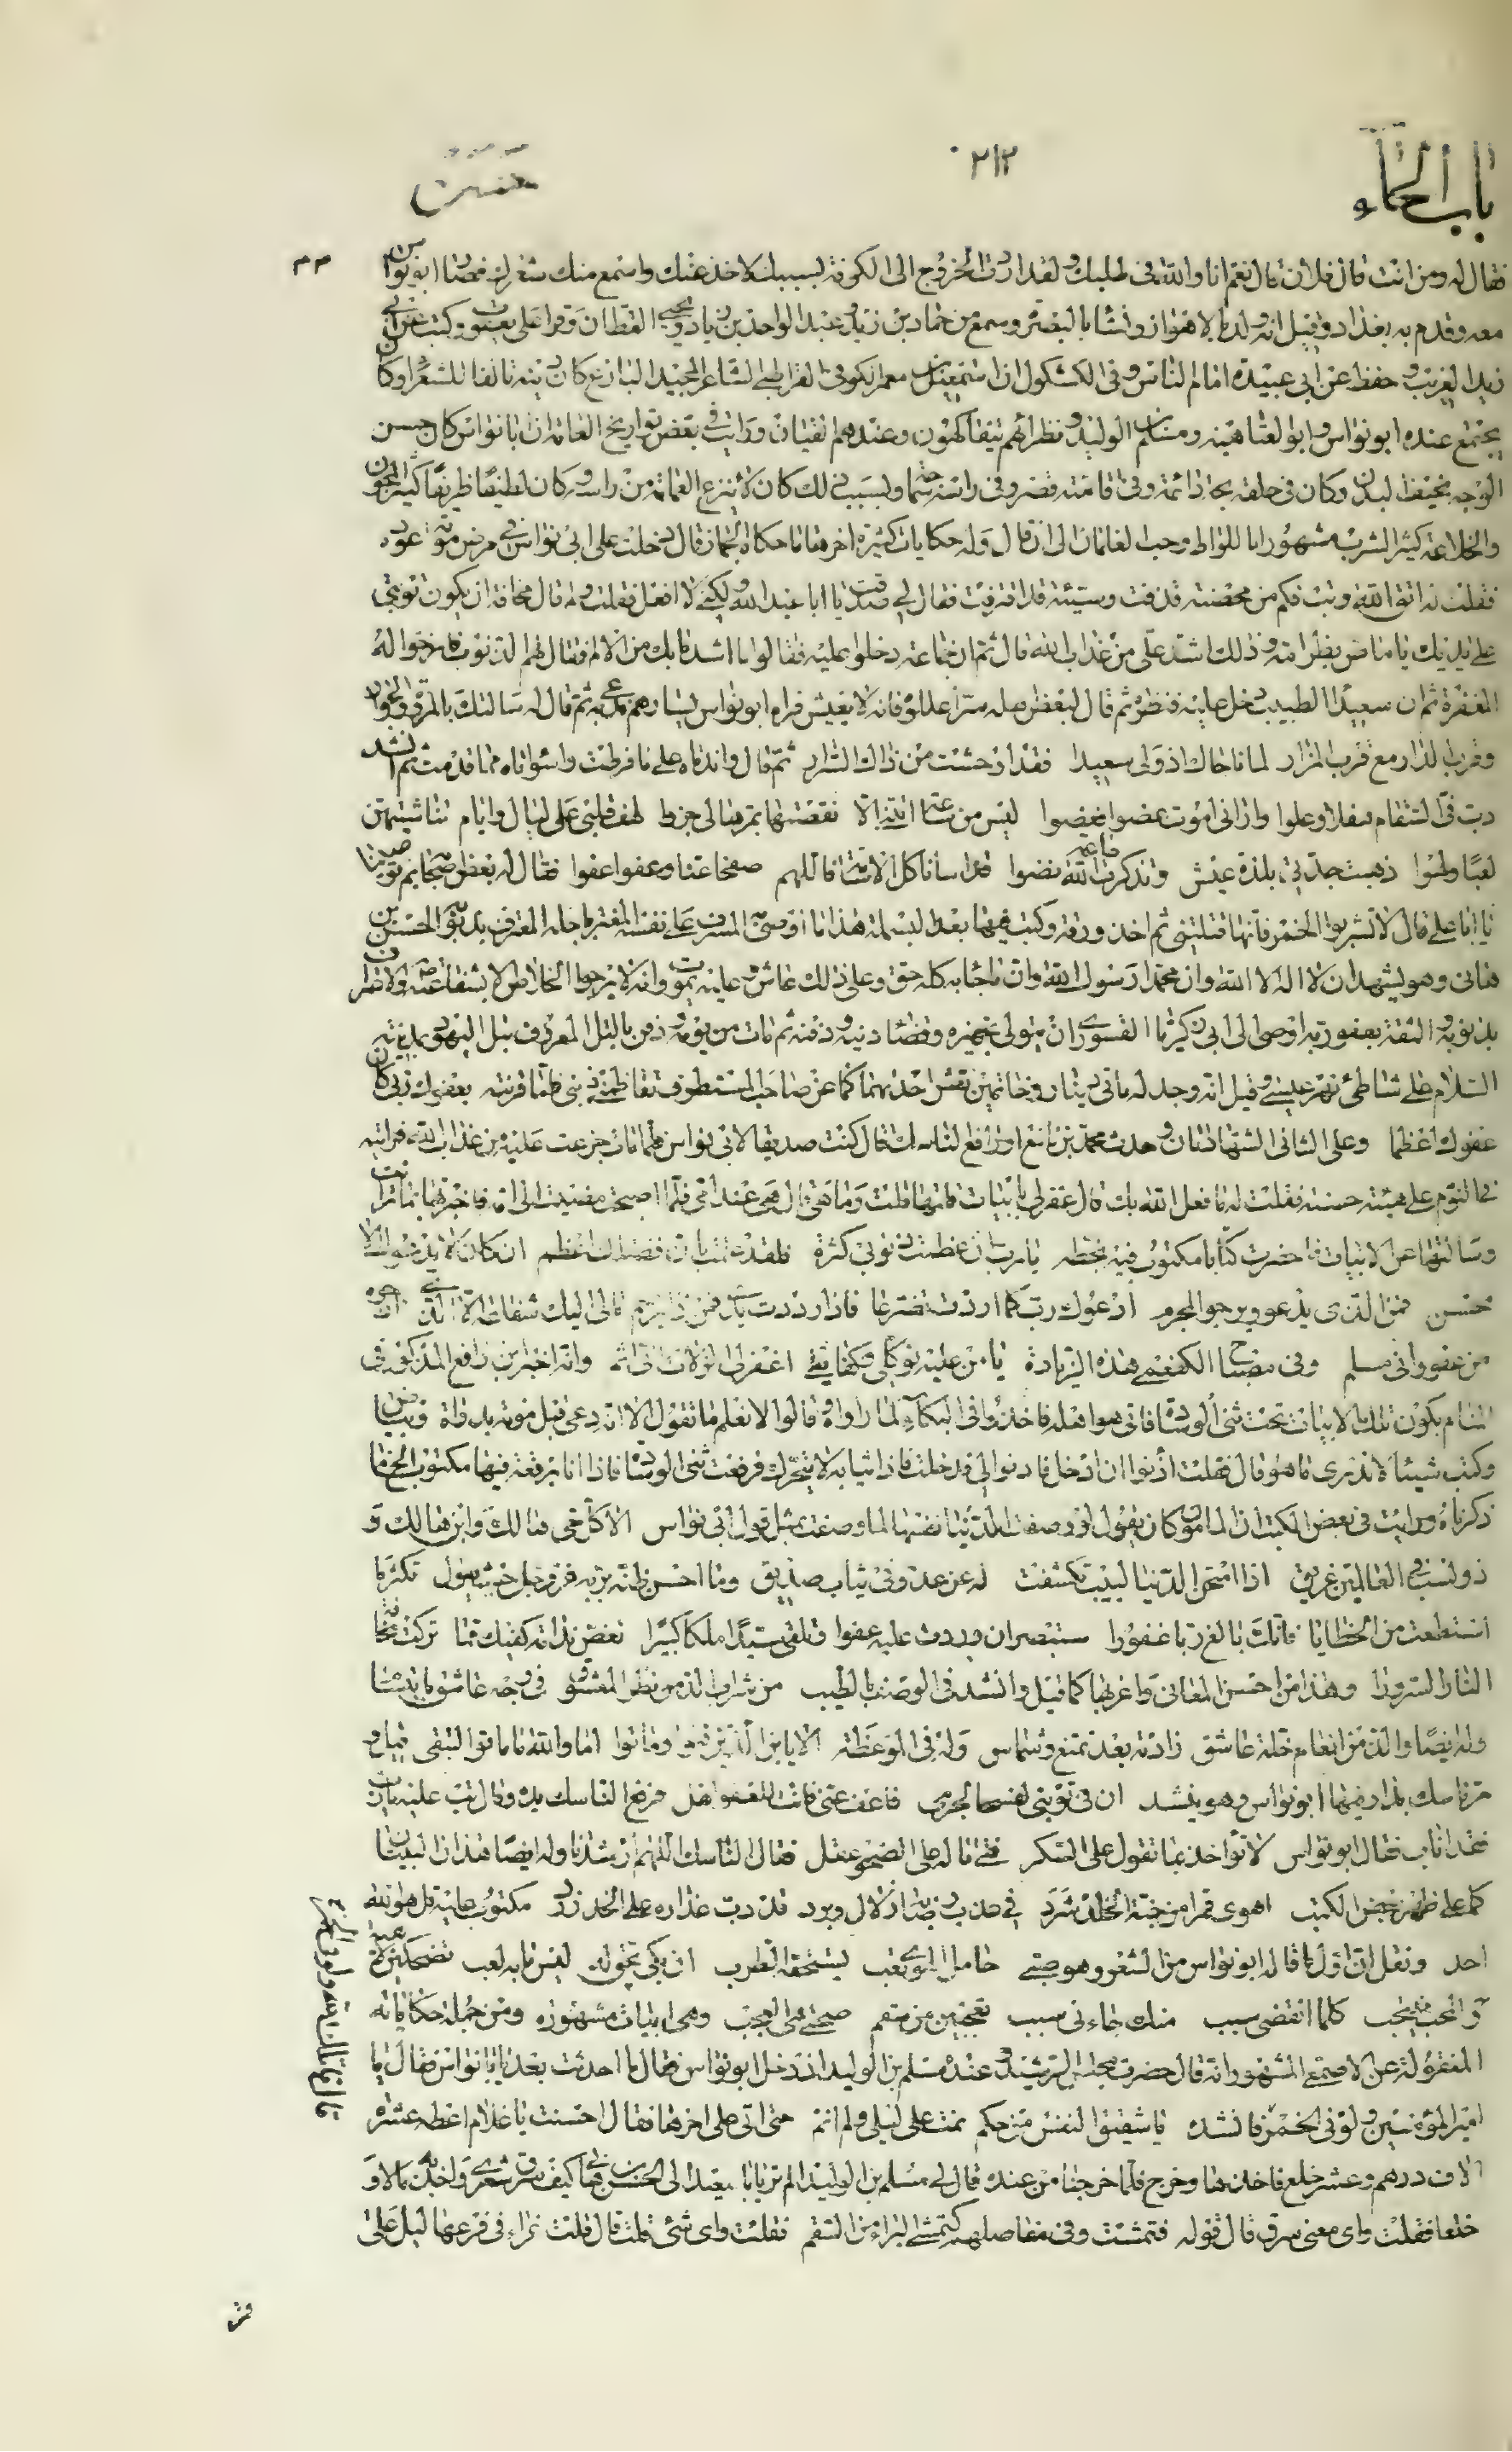 باب الحاء ٢١٢ حسن
فقال له ومن انت قال فلان قال نعم انا والله فى طلبك ولقد اردت الخروج الى الكوفة بسببك لاخذ عنك واسمع منك شعرك فصار ابو نواس
معه وقدم به بغداد وقيل انه ولد بالاهواز ونشا بالبصرة وسمع من حماد بن زيد وعبد الواحد بن زياد ويحيى القطان وقرا على يعقوب وكتب عن ابى
زيد الغريب وحفظ عن ابى عبيدة ايام الناس وفى الكشكول ان اسمعيل بن معمر الكوفى القراطيسى الشاعر المجيد البارع كان بيته مالفا للشعراء وكان
يجتمع عنده ابو نواس وابو العتاهية ومسلم بن الوليد ونظرائهم يتفاكهون وعندهم القيان ورايت فى بعض تواريخ العامة ان ابا نواس كان حسن
الوجه نحيف البدن وكان فى حلقه بحة دائمة وفى قامته قصر وفى راسه سماجة وبسبب ذلك كان لا ينزع العمامة من راسه وكان لطيفا ظريفا كثير المجون
والخلاعة كثير الشرب مشهورا باللواط وحب الغلمان الى ان قال وله حكايات كثيرة اخرها ما حكاه الجماز قال دخلت على ابى نواس فى مرض موته اعوده
فقلت له اتق الله وتب فكم من محصنة قذفت وسيئة قد اقترفت فقال لى صدقت يا ابا عبد الله ولكنى لا افعل فقلت ولم قال مخافة ان يكون توبتى
على يديك يا ماص بظر امه وذلك اشد على من عذاب الله قال ثم ان جماعة دخلوا عليه فقالوا ما اشد ما بك من الالم فقال لهم الذنوب فارجوا له
المغفرة ثم ان سعيدا الطبيب دخل عليه فنظره ثم قال لبعض اهله سرا عللوه فانه لا يعيش فراه ابو نواس يسارهم فدعى به ثم قال له سالتك بالمودة
وقرب الدار مع قرب المزار لما ناجاك اذ ولى سعيد فقد اوحشت من ذاك السرار ثم قال واندماه على ما فرطت واسواتاه مما قدمت ثم انشد
دب فى السقام سفلا وعلوا وارانى اموت عضوا فعضوا ليس من ساعة اتت الا نقصتنى بمرها لى جزوا لهف قلبى على ليال وايام تناسيتهن
لعبا ولهوا ذهبت جدتى بلذة عيش وتذكرت طاعة الله نضوا قد اسانا كل الاساءة فاللهم صفحا عنا وعفوا عفوا فقال له بعض اصحابه بم توصينا
يا ابا على قال لا تشربوا الخمر فانها قتلتنى ثم اخذ ورقة وكتب فيها بعد البسملة هذا ما اوصى المسرف على نفسه المغتر باجله المعترف بذنبه الحسن بن
هانى وهو يشهد ان لا اله الا الله وان محمدا رسول الله وان ما جاء به كله حق وعلى ذلك عاش وعليه يموت وانه لا يرجو الخلاص الا بشفاعته والاقرار
بذنوبه والثقة بعفو ربه اوصى الى ابى زكريا القسورى ان يتولى تجهيزه وقضاء دينه ودفنه ثم مات من يومه ودفن بالتل المعروف بتل اليهود بمدينة
السلام على شاطئ نهر عيسى وقيل انه وجد له مائتى دينار وخاتمين نقش احدهما كما عن صاحب المستطرف تعاظمنى ذنبى فلما قرنته بعفوك ربى كان
عفوك اعظما وعلى الثانى الشهادتان وحدث محمد بن نافع او رافع الناسك قال كنت صديقا لابى نواس فلما مات جزعت عليه من عذاب الله فرايته
فى النوم على هيئة حسنة فقلت له ما فعل الله بك قال غفر لى بابيات قلتها قلت وما هى قال هى عند امى فلما اصبحت مضيت الى امه فاخبرتها بما رايت
وسالتها عن الابيات فاحضرت كتابا مكتوب فيه بخطه يا رب ان عظمت ذنوبى كثرة فلقد علمت بان فضلك اعظم ان كان لا يدعوك الا
محسن فمن الذى يدعو ويرجو المجرم ادعوك رب كما اردت تضرعا فاذا رددت يدى فمن ذا يرحم مالى اليك شفاعة الا الذى ارجوه
من عفو وانى مسلم وفى مصباح الكفعمى هذه الزيادة يا من عليه توكلى وكفايتى اغفر لى الزلات انى اثم وانه اخبر بن رافع المذكور فى
المنام بكون تلك الابيات تحت ثنى الوسادة فاتى هو اهله فاخذوا فى البكاء لما راوه قالوا لا نعلم ما تقول الا انه دعى قبل موته بدواة وبياض
وكتب شيئا لا ندرى ما هو قال فقلت أذنوا ان ادخل فاذنوا لى فدخلت فاذا ثيابه لا تتحرك فرفعت ثنى الوسادة فاذا انا برقعة فيها مكتوب الخ ما
ذكرناه ورايت فى بعض الكتب ان المامون كان يقول لو وصفت الدنيا نفسها لما وصفت بمثل قول ابى نواس الا كل حى هالك وابن هالك و
ذو نسب فى العالمين عريق اذا امتحن الدنيا لبيب تكشفت له عن عدو فى ثياب صديق وما احسن ظنه بربه عز وجل حيث يقول تكثر ما
استطعت من الخطايا فانك بالغ ربا غفورا ستبصر ان وردت عليه عفوا وتلقى سيدا ملكا كبيرا تعض ندامة كفيك مما تركت مخافة
النار السرورا وهذا من احسن المعانى واغربها كما قيل وانشد فى الوصف بالطيب من شراب الذ من نظر المعشوق فى وجه عاشق بابتسام
وله ايضا والذ من انعام خلة عاشق زارته بعد تمنع وشماس وله فى الموعظة الا يا بن الذين فنوا وماتوا اما والله ما ماتوا لتبقى قيل و
مر ناسك بدار فيها ابو نواس وهو ينشد ان فى توبتى لفسخا لجرمى فاعف عنى فانت للعفو اهل فرفع الناسك يده وقال تب عليه يا رب
فقد اناب فقال ابو نواس لا تؤاخذ بما تقول على السكر فتى ما له على الصحو عقل فقال الناسك اللهم ارشدنا وله ايضا هذان البيتان
كما على ظهر بعض الكتب اهوى قمرا من جنة الخلد شرد فى قد دب عذاره على الخد زرد مكتوب عليه قل هو الله
احد ونقل ان اول ما قاله ابو نواس من الشعر وهو صبى حامل الهوى تعب يستخفه الطرب ان بكى يحق له ليس ما به لعب تضحكين لاهية
والمحب ينتحب كلما انقضى سبب منك جاءنى سبب تعجبين من سقمى صحتى هى العجب وهى ابيات مشهورة ومن جملة حكاياته
المنقولة عن الاصمعى المشهور انه قال حضرت مجلس الرشيد وعنده مسلم بن الوليد اذ دخل ابو نواس فقال ما احدثت بعدنا يا ابا نواس فقال يا
امير المؤمنين ولو فى الخمر فانشده يا شقيق النفس من حكم نمت عن ليلى ولم انم حتى اتى على اخرها فقال احسنت يا غلام اعطه عشرة
الاف درهم وعشر خلع فاخذها وخرج فلما خرجنا من عنده قال لى مسلم بن الوليد الم تر يا ابا سعيد الى الحسن بن هانى كيف سرق شعرى واخذ به مالا و
خلعا فقلت واى معنى سرق قال قوله فتمشت فى مفاصلهم كتمشى البرء فى السقم فقلت واى شئ قلت قال قلت غراء فى فرعها ليل على
قمر